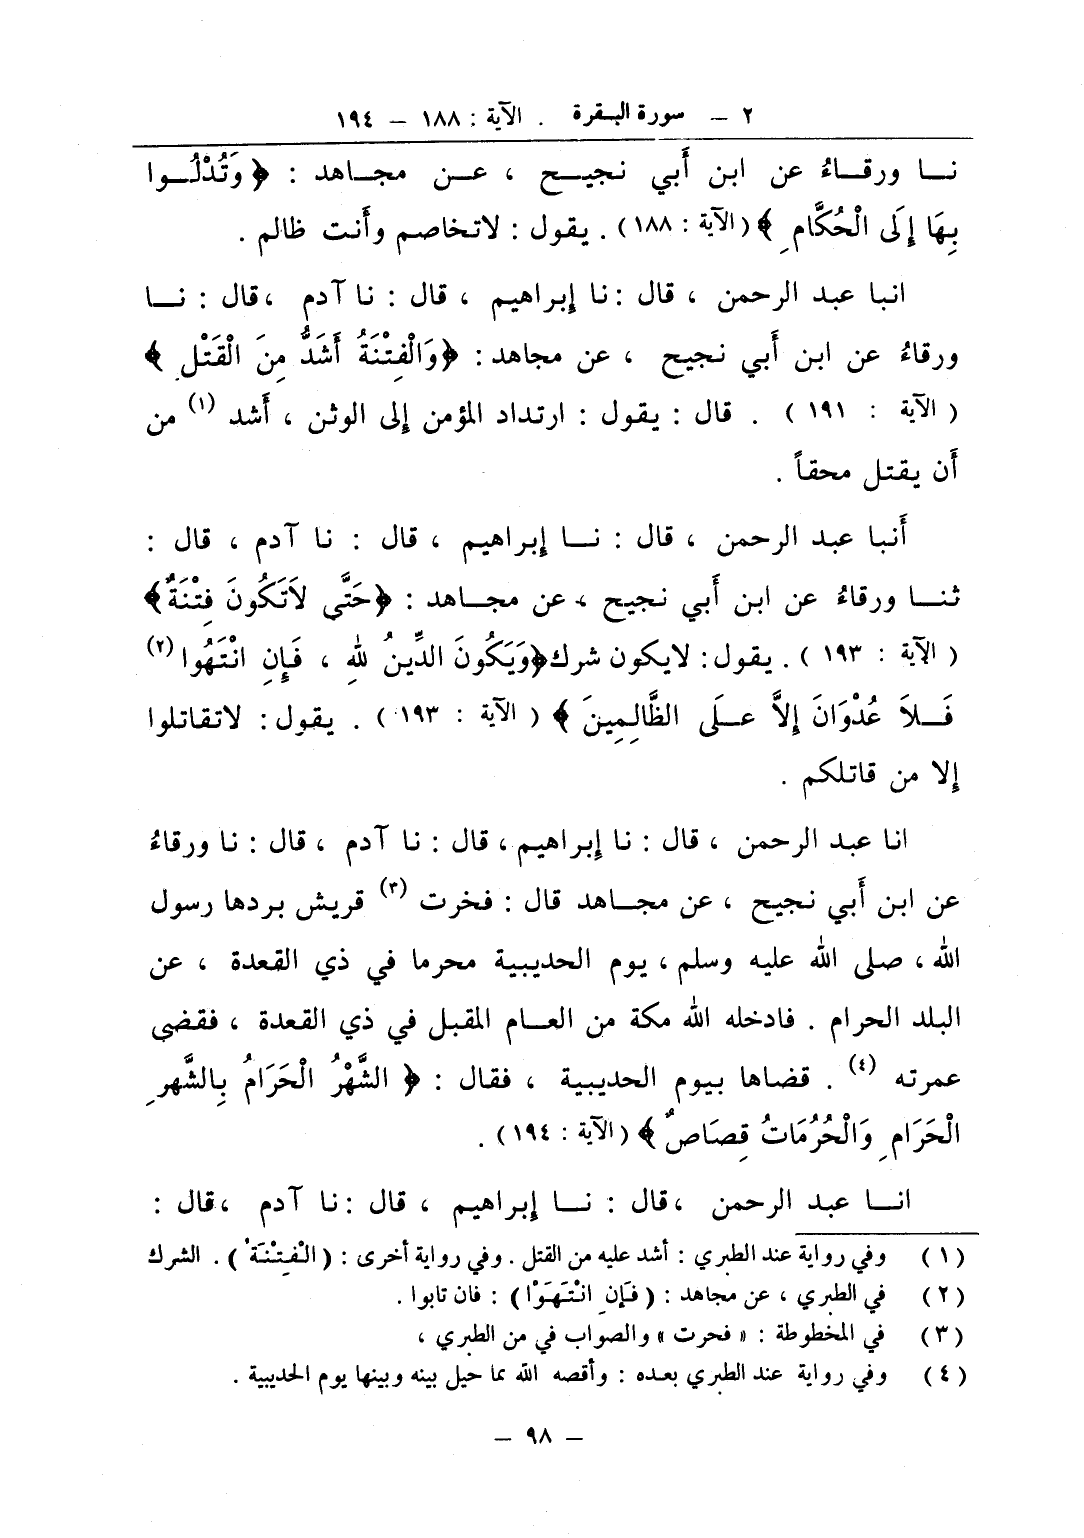 ٢ – سورة البقرة . الآية : ١٨٨ – ١٩٤
نا ورقاءُ عن ابن أَبي نجيح ، عن مجاهد : ﴿ وَتُدْلُوا
بِهَا إِلَى الْحُكَّامِ ﴾ (الآية : ١٨٨) . يقول : لاتخاصم وأَنت ظالم .
انبا عبد الرحمن ، قال : نا إبراهيم ، قال : نا آدم ، قال : نا
ورقاءُ عن ابن أَبي نجيح ، عن مجاهد : ﴿وَالْفِتْنَةُ أَشَدُّ مِنَ الْقَتْلِ ﴾
( الآية : ١٩١ ) . قال : يقول : ارتداد المؤمن إلى الوثن ، أَشد (١) من
أَن يقتل محقاً .
أَنبا عبد الرحمن ، قال : نا إبراهيم ، قال : نا آدم ، قال :
ثنا ورقاءُ عن ابن أَبي نجيح ، عن مجاهد : ﴿حَتَّى لاَتَكُونَ فِتْنَةٌ﴾
( الآية : ١٩٣ ) . يقول : لايكون شرك ﴿وَيَكُونَ الدِّينُ للهِ ، فَإِنِ انْتَهُوا (٢)
فَلاَ عُدْوَانَ إِلاَّ عَلَى الظَّالِمِينَ ﴾ ( الآية : ١٩٣ ) . يقول : لاتقاتلوا
إلا من قاتلكم .
انا عبد الرحمن ، قال : نا إبراهيم ، قال : نا آدم ، قال : نا ورقاءُ
عن ابن أَبي نجيح ، عن مجاهد قال : فخرت (٣) قريش بردها رسول
الله ، صلى الله عليه وسلم ، يوم الحديبية محرما في ذي القعدة ، عن
البلد الحرام . فادخله الله مكة من العام المقبل في ذي القعدة ، فقضى
عمرته (٤) . قضاها بيوم الحديبية ، فقال : ﴿ الشَّهْرُ الْحَرَامُ بِالشَّهرِ
الْحَرَامِ وَالْحُرُمَاتُ قِصَاصٌ ﴾ (الآية : ١٩٤) .
انا عبد الرحمن ، قال : نا إبراهيم ، قال : نا آدم ، قال :
(١) وفي رواية عند الطبري : أشد عليه من القتل . وفي رواية أخرى : ( الْفِتْنَةُ ) . الشرك
(٢) في الطبري ، عن مجاهد : ( فَإِنِ انْتَهَوْا ) : فان تابوا .
(٣) في المخطوطة : « فحرت » والصواب في من الطبري ،
(٤) وفي رواية عند الطبري بعده : وأقصه الله بما حيل بينه وبينها يوم الحديبية .
– ٩٨ –